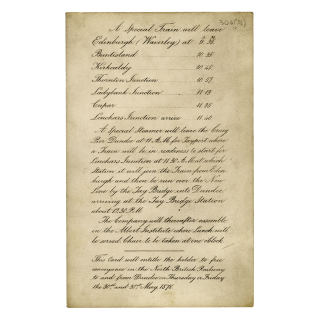 A Special Train will leave
Edinburgh (Waverley) at
Burntisland 10.35
Kirkcaldy 10.45
Thornton Junction 10.57
Ladybank Junction 11.19
Cupar
Leuchars Junction arrive 11.40
A Special Steamer will leave the Craig
Pier Dundee at 11 A.M. for Tayport where
a Train will be in readiness to start for
Leuchars Junction at 11.30 A.M. at which
Station it will join the Train from Edin
burgh and then be run over the New
Line by the Tay Bridge into Dundee
arriving at the Tay Bridge Station
about 12.30 P.M.
The Company will thereafter assemble
in the Albert Institute where Lunch will
be served Chair to be taken at one o'clock
This Card will entitle the holder to free
conveyance in the North British Railway
to and from Dundee on Thursday or Friday
the 30th and 31st May 1878.